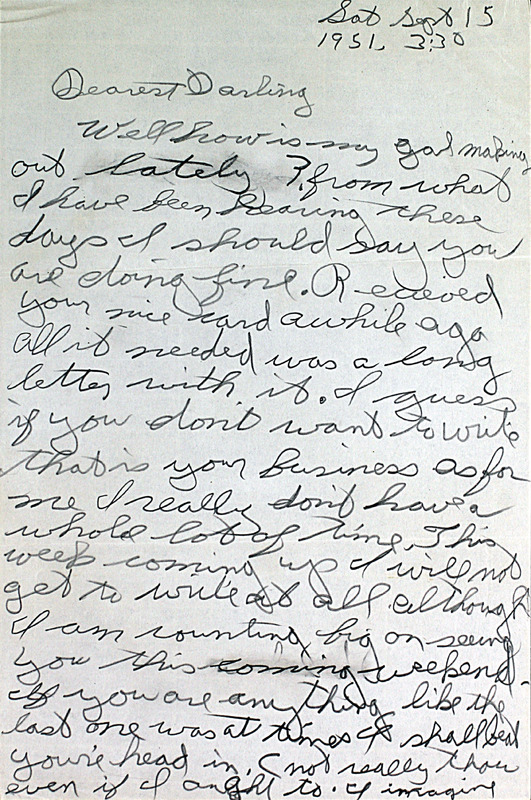 Sat Sept 15
1951, 3:30
Dearest Darling
Well how is my gal making
out lately ?. from what
I have been hearing these
days I should say you
are doing fine. Received
your nice card awhile ago
all it needed was a long
letter with it. I guess
if you don't want to write
that is your business as for
me I really don't have a
whole lot of time. This
week coming up I will not
get to write at all although
I am counting big on seeing
you this coming weekend.
If you are anything like the
last one was at times I shall beat
you're head in. (not really thou
even if I ought to. I imagine